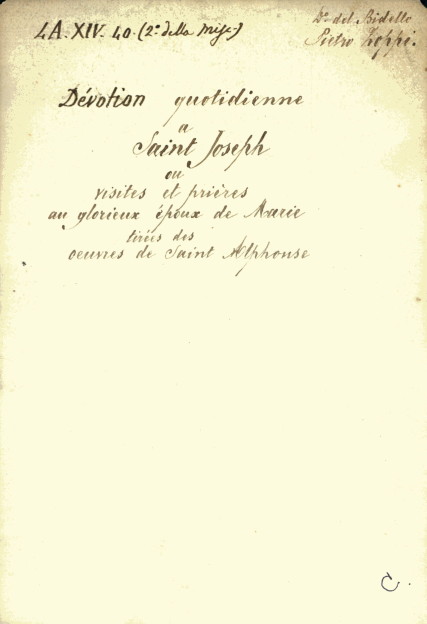 LA. XIV. 40. (2ª della Misc.)
Dº del Bidello
Pietro Zoppi.
Dévotion quotidienne
a
Saint Joseph
ou
visites et prières
au glorieux époux de Marie
tirées des
oeuvres de Saint Alphonse
C.